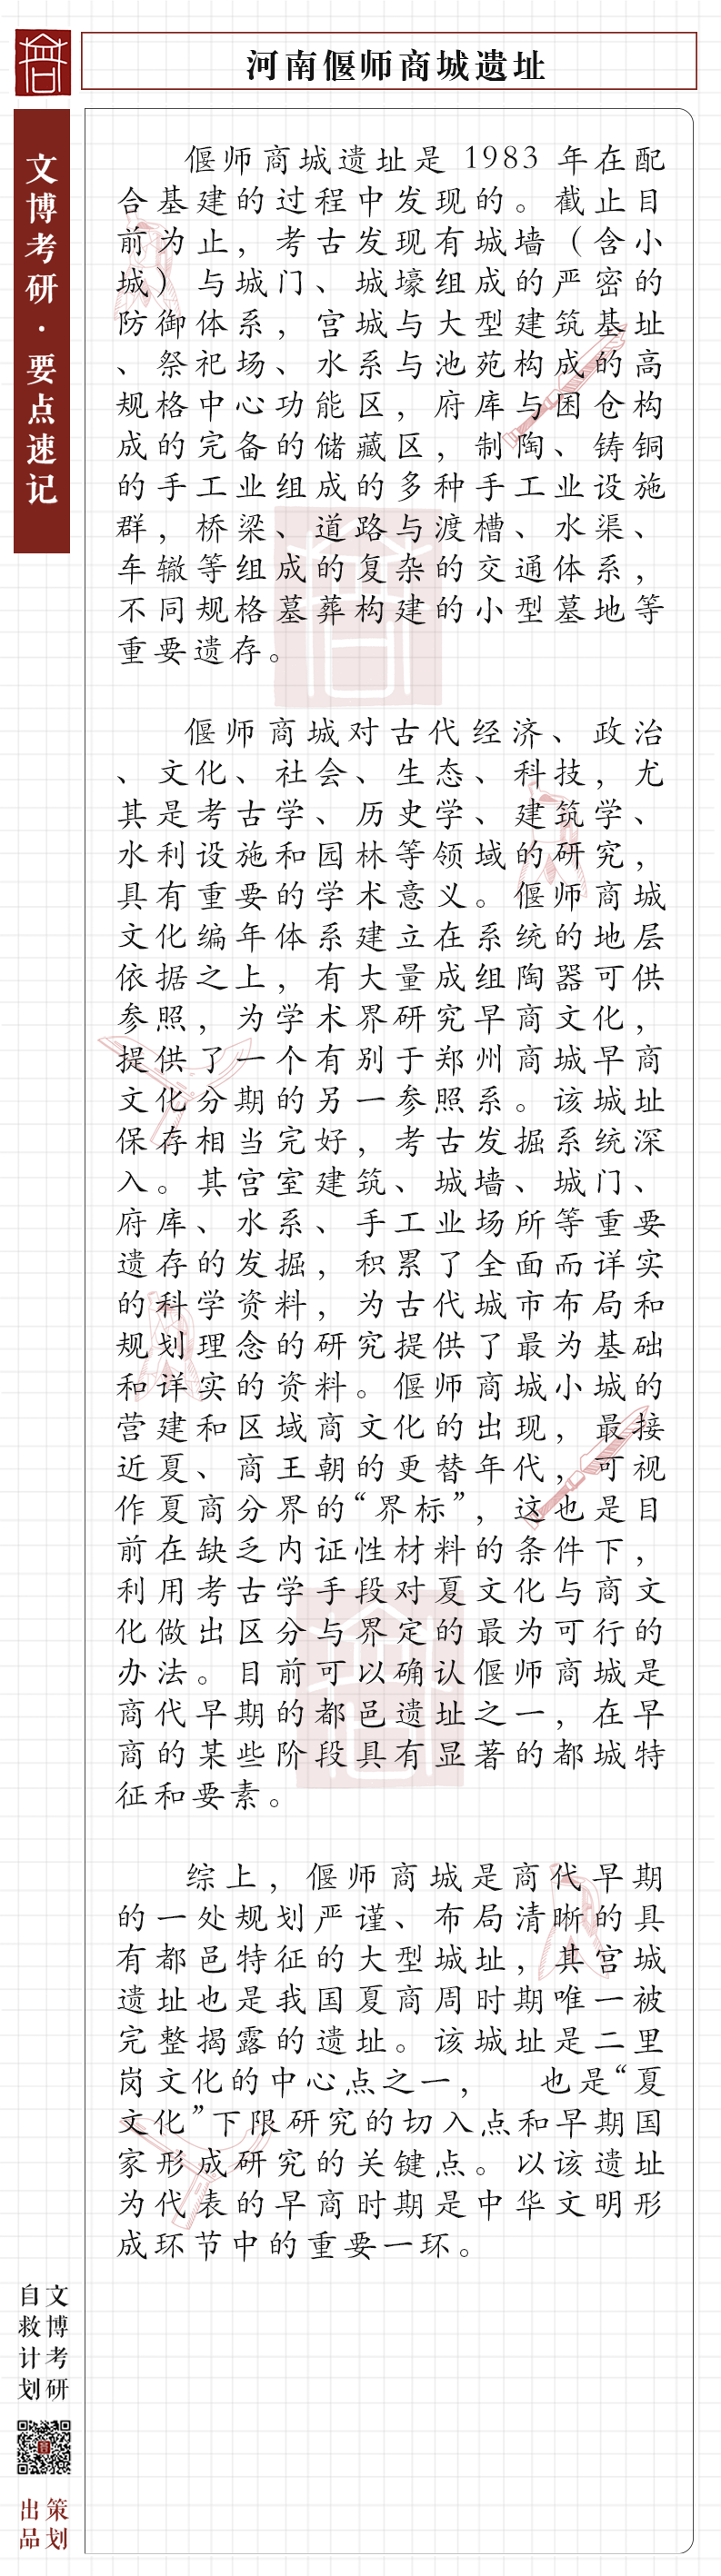 河南偃师商城遗址
文博考研·要点速记
偃师商城遗址是 1983 年在配
合基建的过程中发现的。截止目
前为止，考古发现有城墙（含小
城）与城门、城壕组成的严密的
防御体系，宫城与大型建筑基址
、祭祀场、水系与池苑构成的高
规格中心功能区，府库与囷仓构
成的完备的储藏区，制陶、铸铜
的手工业组成的多种手工业设施
群，桥梁、道路与渡槽、水渠、
车辙等组成的复杂的交通体系，
不同规格墓葬构建的小型墓地等
重要遗存。
偃师商城对古代经济、政治
、文化、社会、生态、科技，尤
其是考古学、历史学、建筑学、
水利设施和园林等领域的研究，
具有重要的学术意义。偃师商城
文化编年体系建立在系统的地层
依据之上，有大量成组陶器可供
参照，为学术界研究早商文化，
提供了一个有别于郑州商城早商
文化分期的另一参照系。该城址
保存相当完好，考古发掘系统深
入。其宫室建筑、城墙、城门、
府库、水系、手工业场所等重要
遗存的发掘，积累了全面而详实
的科学资料，为古代城市布局和
规划理念的研究提供了最为基础
和详实的资料。偃师商城小城的
营建和区域商文化的出现，最接
近夏、商王朝的更替年代，可视
作夏商分界的“界标”，这也是目
前在缺乏内证性材料的条件下，
利用考古学手段对夏文化与商文
化做出区分与界定的最为可行的
办法。目前可以确认偃师商城是
商代早期的都邑遗址之一，在早
商的某些阶段具有显著的都城特
征和要素。
综上，偃师商城是商代早期
的一处规划严谨、布局清晰的具
有都邑特征的大型城址，其宫城
遗址也是我国夏商周时期唯一被
完整揭露的遗址。该城址是二里
岗文化的中心点之一，　也是“夏
文化”下限研究的切入点和早期国
家形成研究的关键点。以该遗址
为代表的早商时期是中华文明形
成环节中的重要一环。
文博考研
自救计划
策划
出品